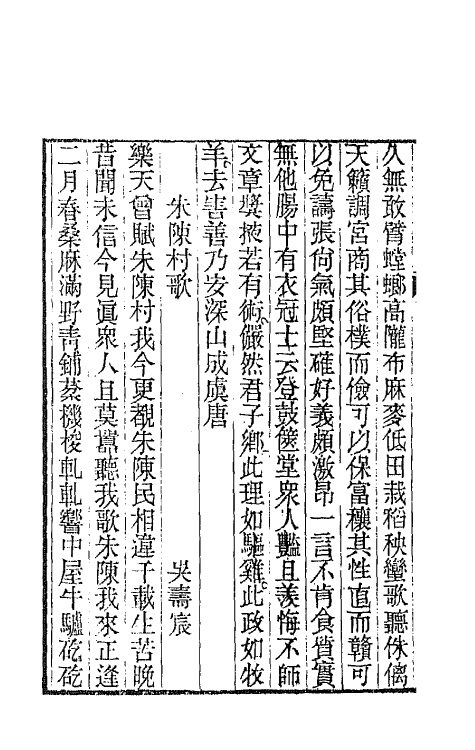 久無敢臂螳螂高隴布麻麥低田栽稻秧蠻歌聽侏㒧
天籟調宮商其俗樸而儉可以保富穰其性直而贛可
以免譸張尙氣頗堅確好義頗激昂一言不肯食質實
無他腸中有衣冠士云登鼓篋堂衆人豔且羨悔不師
文章獎掖若有術儼然君子鄉此理如驅雞此政如牧
羊去害善乃安深山成虞唐
朱陳村歌 吳壽宸
樂天曾賦朱陳村我今更觀朱陳民相違千載生苦晚
昔聞未信今見眞衆人且莫囂聽我歌朱陳我來正逢
二月春桑麻滿野靑鋪棻機梭軋軋響中屋牛驢矻矻